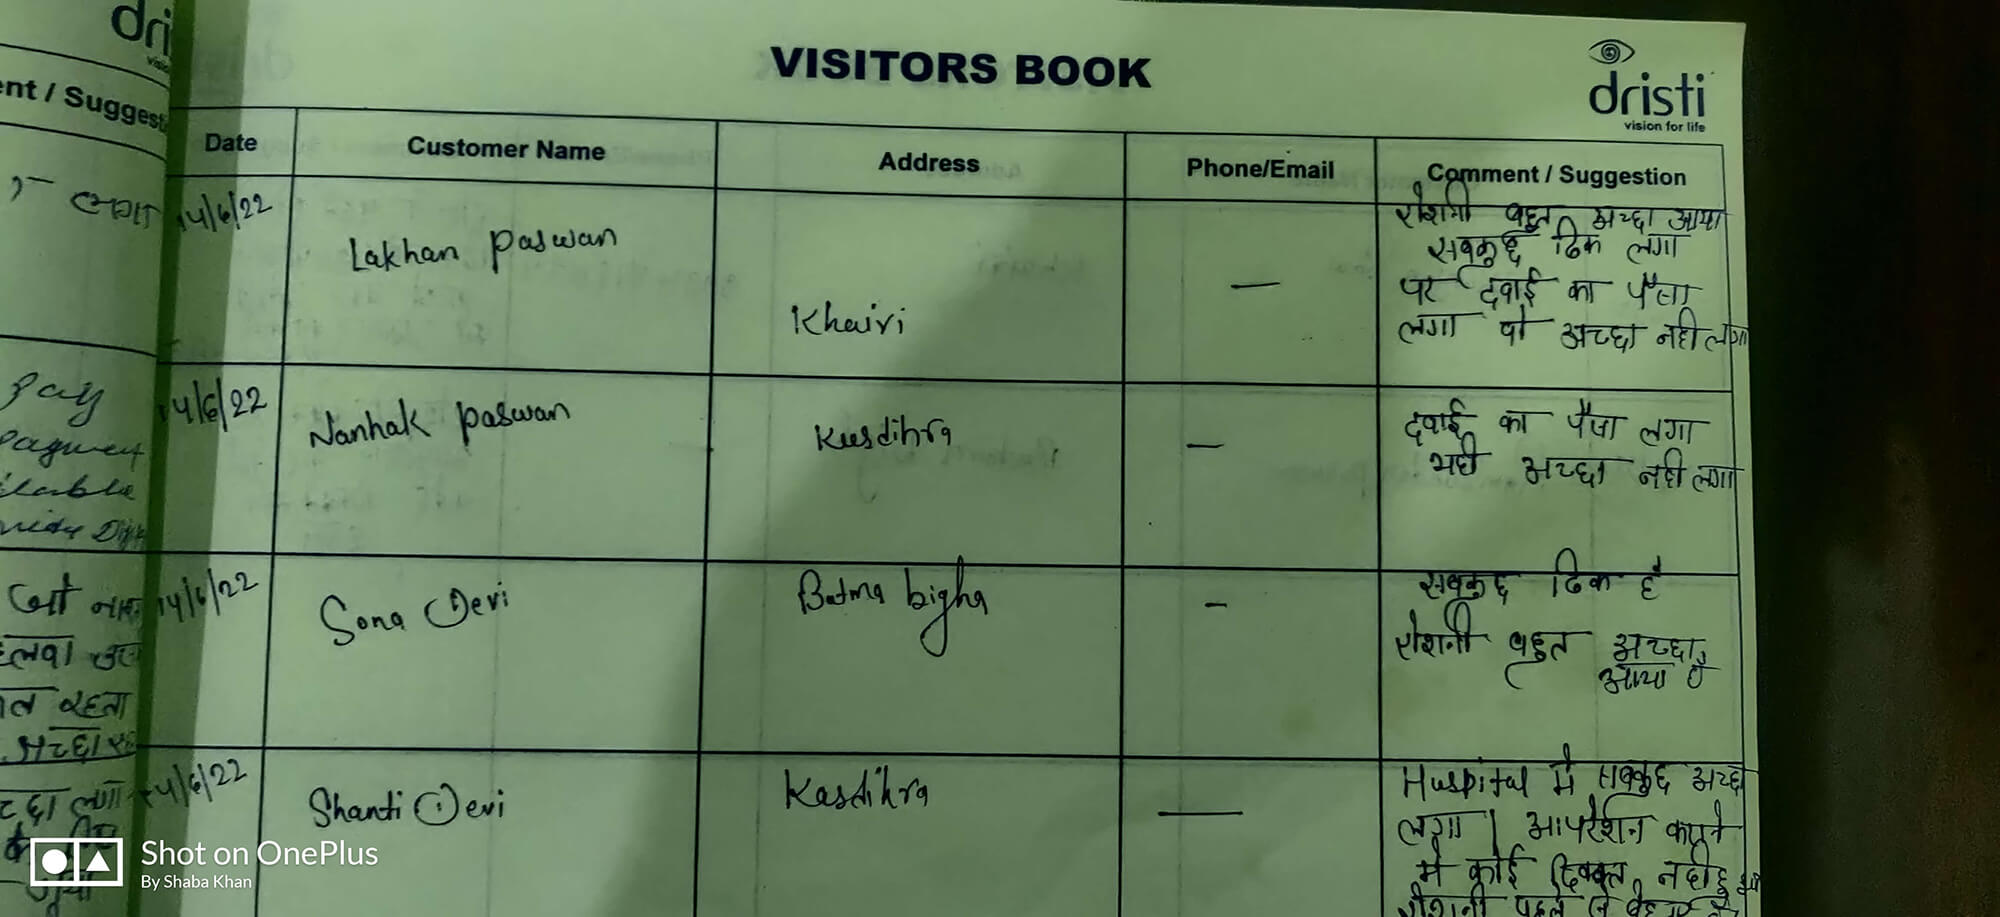 dri
VISITORS BOOK
dristi
vision for life
ent / Suggest
Date
Customer Name
Address
Phone/Email
Comment / Suggestion
लगा
14/6/22
Lakhan paswan
Khairi
—
रोशनी बहुत अच्छा आया
सबकुछ ठिक लगा
पर दवाई का पैसा
लगा वो अच्छा नही लगा
Pay
Payment
14/6/22
Nanhak paswan
Kusdihra
—
दवाई का पैसा लगा
यही अच्छा नही लगा
14/6/22
Sona Devi
Batma bigha
-
सबकुछ ठिक है
रोशनी बहुत अच्छा
आया है
रहता
अच्छा
14/6/22
Shanti Devi
Kasdihra
—
Huspital मे सबकुछ अच्छा
लगा। आपरेशन कराने
मे कोई दिक्कत नही हुआ
रोशनी पहले से
Shot on OnePlus
By Shaba Khan